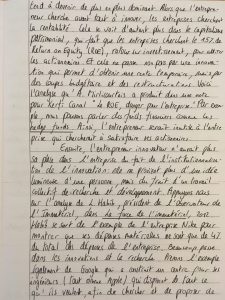 tend à devenir de plus en plus dominant. Alors que l'entrepre-
neur cherche avant tout à innover, les entreprises cherchent
la rentabilité. Cela se voit d'autant plus dans le capitalisme
patrimonial, qui fait que les entreprises cherchent le 15% de
Return on Equity (ROE), retour sur investissement, pour attirer
les actionnaires. Et cela ne passe non pas par une innova-
tion qui permet d'obtenir une rente temporaire, mais par
des coups budgétaires et des restructurations dans
l'analyse qu'A. produit dans une note
pour Xerfi Canal "le ROE, danger pour l'entreprise". Par exem-
ple, nous pouvons parler des fonds financiers comme les
hedge funds. Ainsi, l'entrepreneur serait inutile à l'entre-
prise qui chercherait à satisfaire ses actionnaires.
Ensuite, l'entrepreneur innovateur n'aurait plus
sa place dans l'entreprise du fait de l'institutionnalisa-
tion de l'innovation : elle ne provient plus d'une idée
lumineuse d'une personne, mais du fruit d'un travail
collectif de recherche et développement. Appuyons nous
sur l'analyse de L. Habib, président de l'observatoire de
l'immatériel, dans la force de l'immatériel, où
Habib se sert de l'exemple de l'entreprise Nike pour
montrer que ses dépenses matérielles ne sont que de 4%
du total des dépenses de l'entreprise, beaucoup passe
dans les innovations et la recherche. Prenons l'exemple
également de Google qui a construit un centre pour ses
ingénieurs (tout comme Apple) qui disposent de tout ce
qu'ils veulent, afin de chercher et de proposer de